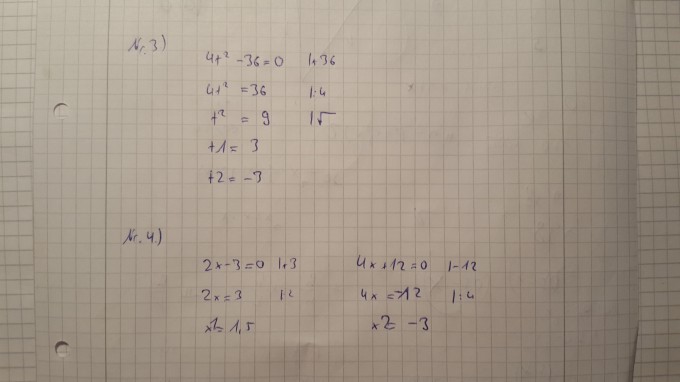 Nr. 3)
4t² - 36 = 0 |+36
4t² = 36 |:4
t² = 9 |√
t1 = 3
t2 = -3
Nr. 4.)
2x - 3 = 0 |+3 4x + 12 = 0 |-12
2x = 3 |:2 4x = -12 |:4
x1 = 1,5 x2 = -3